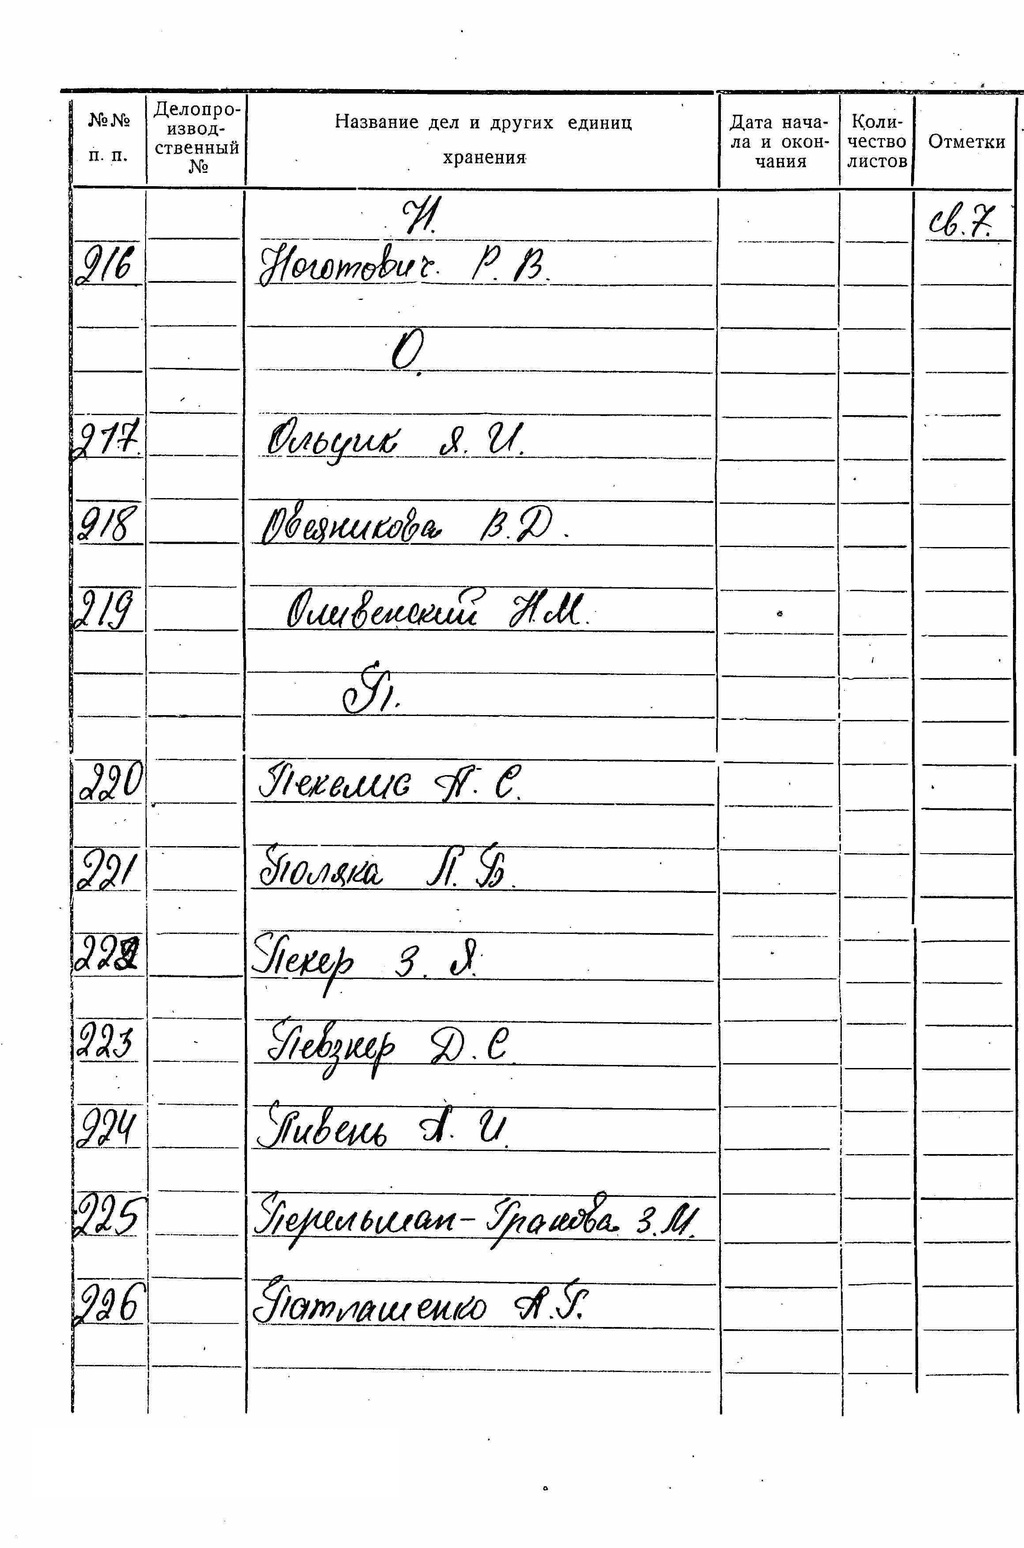 №№ п. п. Делопроизвод-ственный № Название дел и других единиц хранения Дата начала и окончания Количество листов Отметки
Н. св. 7.
216 Ноготович Р. В.
О.
217. Ольчик Я. И.
218 Овсяникова В. Д.
219 Оливенский Н. М.
П.
220 Пекелис А. С.
221 Поляка Л. Б.
222 Пекер З. Я.
223 Певзнер Д. С.
224 Пивень А. И.
225 Перельман-Гранова З. М.
226 Патлашенко А. Г.